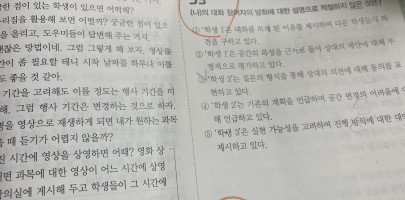 한 점이 있는 학생이 있으면 어떠해?
리점을 활용해 보면 어떨까? 궁금한 점이 있으
을 올리고, 도우미들이 답변해 주는 거지.
괜찮은 방법이네. 그럼 그렇게 해 보자. 영상을
간이 좀 필요할 테니 시작 날짜를 하루나 이틀
도 좋을 것 같아.
기간을 고려해도 이틀 정도는 행사 기간을 미
해. 그럼 행사 기간은 변경하는 것으로 하자.
명을 영상으로 재생하게 되면 내가 원하는 과목
을 때 듣기가 어렵지 않을까?
진 시간에 영상을 상영하면 어때? 영화 상
어떤 과목에 대한 영상이 어느 시간에 상영
의실에 게시해 두고 학생들이 그 시간에
(나)의 대화 참여자의 발화에 대한 설명으로 적절하지 않은 것은?
① '학생 1'은 대화를 하게 된 이유를 제시하며 다른 학생들의 의
견을 구하고 있다.
② '학생 1'은 공간의 특성을 근거로 들어 상대의 제안에 대해 부
정적으로 평가하고 있다.
③ '학생 2'는 질문의 형식을 통해 상대의 의견에 대해 동의를 표
현하고 있다.
④ '학생 2'는 기존의 계획을 언급하며 공간 변경의 어려움에 대
해 언급하고 있다.
⑤ '학생 3'은 실현 가능성을 고려하여 진행 방식에 대한 대안
제시하고 있다.